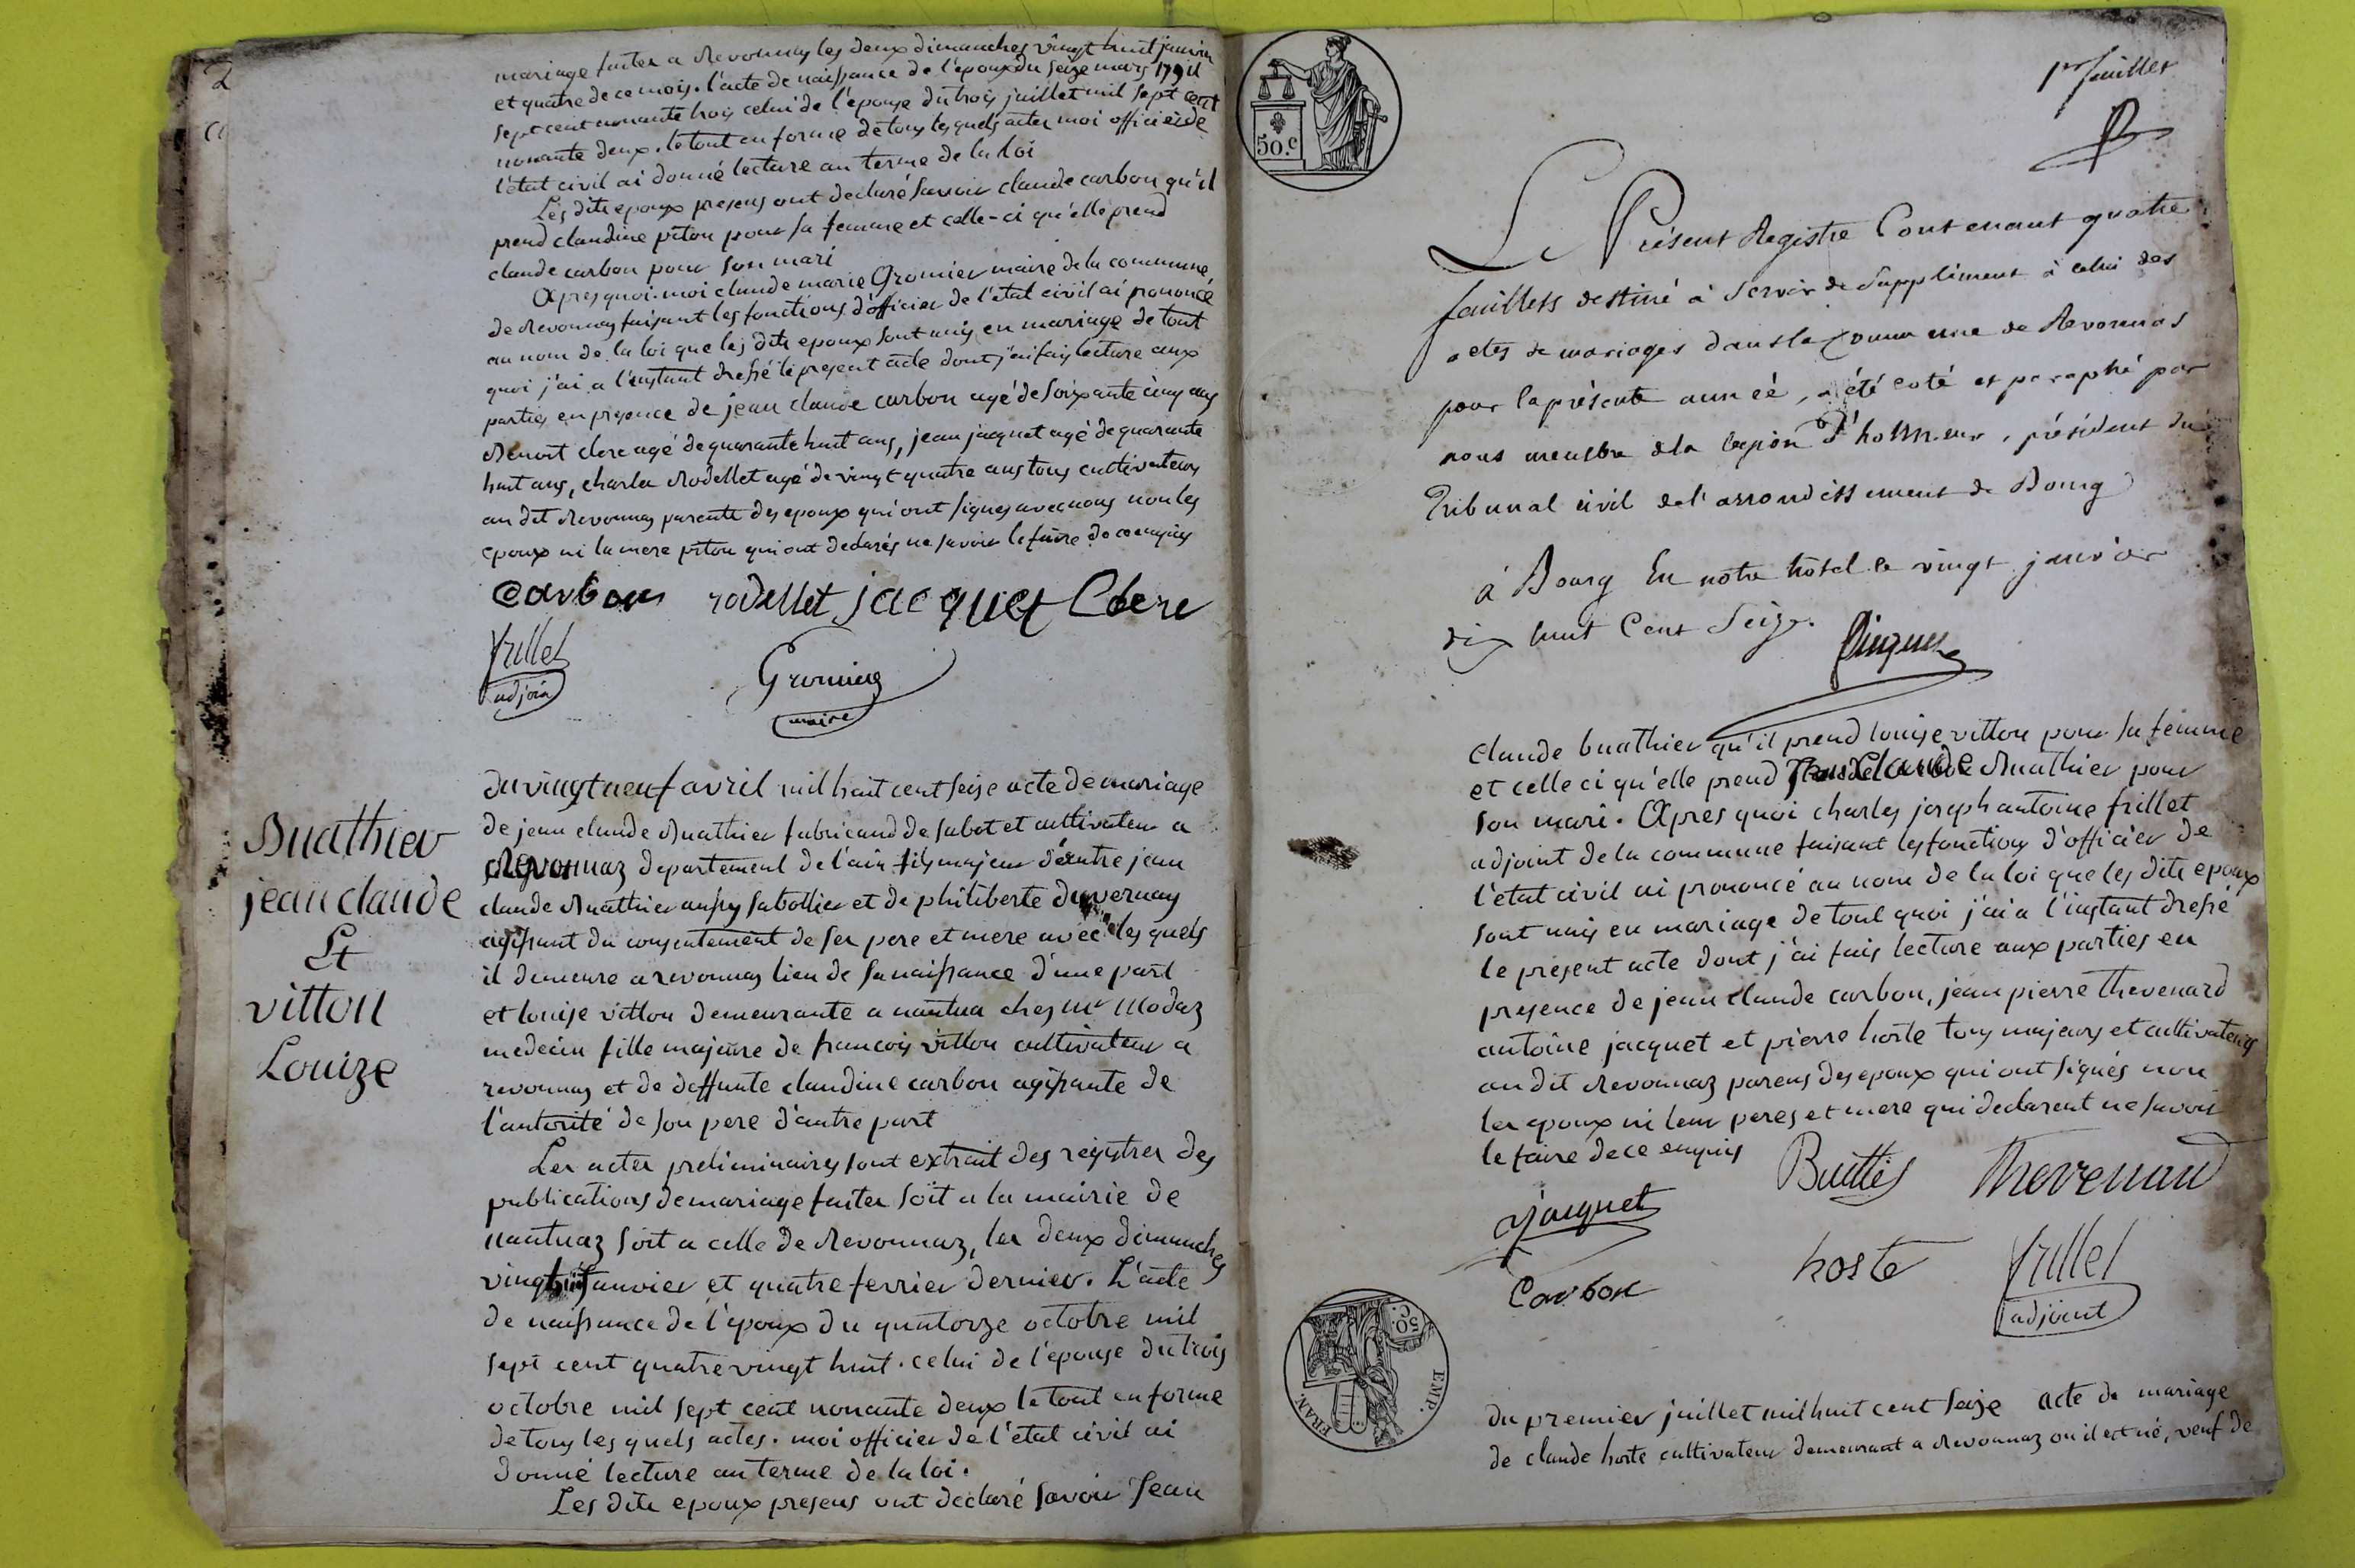 2
mariage faites a Revonnas les deux dimanches vingt huit janvier
et quatre de ce mois. l'acte de naissance de l'epoux du seize mars
sept cent nonante trois celui de l'epouse du trois juillet mil sept cent
nonante deux. le tout en forme de tous lesquels actes moi officier de
l'état civil ai donné lecture au terme de la loi
Les dits epoux presens ont declaré savoir claude carbon qu'il
prend claudine piton pour sa femme et celle-ci qu'elle prend
claude carbon pour son mari
Apres quoi. moi claude marie Gromier maire de la commune
de Revonnas faisant les fonctions d'officier de l'etat civil ai prononcé
au nom de la loi que les dits epoux sont unis en mariage de tout
quoi j'ai a l'instant dressé le present acte dont j'ai fais lecture aux
parties en presence de jean claude carbon agé de soixante cinq ans
Benoit clere agé de quarante huit ans, jean jacquet agé de quarante
huit ans, charles Rodellet agé de vingt quatre ans tous cultivateurs
au dit Revonnas parents des epoux qui ont signes avec nous non les
epoux ni la mere piton qui ont declarés ne savoir le faire de ce enquis
carbon rodellet jacquet Clere
frillet Gromier
adjoin maire
Buathier
jean claude
Et
vitton
Louize
du vingt neuf avril mil huit cent seize acte de mariage
de jean claude Buathier fabricand de sabot et cultivateur a
Revonnaz departement de l'ain fils majeur d'entre jean
claude Buathier aussy sabottier et de philiberte duvernay
agissant du consentement de ses pere et mere avec les quels
il demeure a revonnas lieu de sa naissance d'une part
et louise vitton demeurante a nantua chez mr Modaz
medecin fille majeure de francois vitton cultivateur a
revonnas et de deffunte claudine carbon agissante de
l'autorité de son pere d'autre part
Les actes preliminaires sont extrait des registres des
publications de mariage faites soit a la mairie de
nantuaz soit a celle de Revonnaz, les deux dimanches
vingt huit janvier et quatre fevrier dernier. L'acte
de naissance de l'epoux du quatorze octobre mil
sept cent quatre vingt huit. celui de l'epouse du trois
octobre mil sept cent nonante deux le tout en forme
de tous les quels actes. moi officier de l'état civil ai
donné lecture au terme de la loi.
Les dits epoux presens ont declaré savoir Jean
50.c
1er feuillet
Le Présent Registre Contenant quatre
feuillets destiné à servir de supplément à celui des
actes de mariages dans la Commune de Revonnas
pour la présente année, a été coté et paraphé par
nous membre de la légion d'honneur, président du
Tribunal civil de l'arrondissement de Bourg
à Bourg En notre hôtel le vingt janvier
dix huit Cent Seize.
claude buathier qu'il prend louise vitton pour sa femme
et celle ci qu'elle prend Jean Claude Buathier pour
son mari. Apres quoi charles joseph antoine frillet
adjoint de la commune faisant les fonctions d'officier de
l'etat civil ai prononcé au nom de la loi que les dits epoux
sont unis en mariage de tout quoi j'ai a l'instant dressé
le present acte dont j'ai fais lecture aux parties en
presence de jean claude carbon, jean pierre thevenard
antoine jacquet et pierre hoste tous majeurs et cultivateurs
au dit Revonnaz parens des epoux qui ont signés non
les epoux ni leur peres et mere qui declarent ne savoir
le faire de ce enquis
jacquet Thevenard
Carbon hoste frillet
adjoint
50.C.
EMP. FRAN.
du premier juillet mil huit cent seize acte de mariage
de claude hoste cultivateur demeurant a Revonnaz ou il est né, veuf de